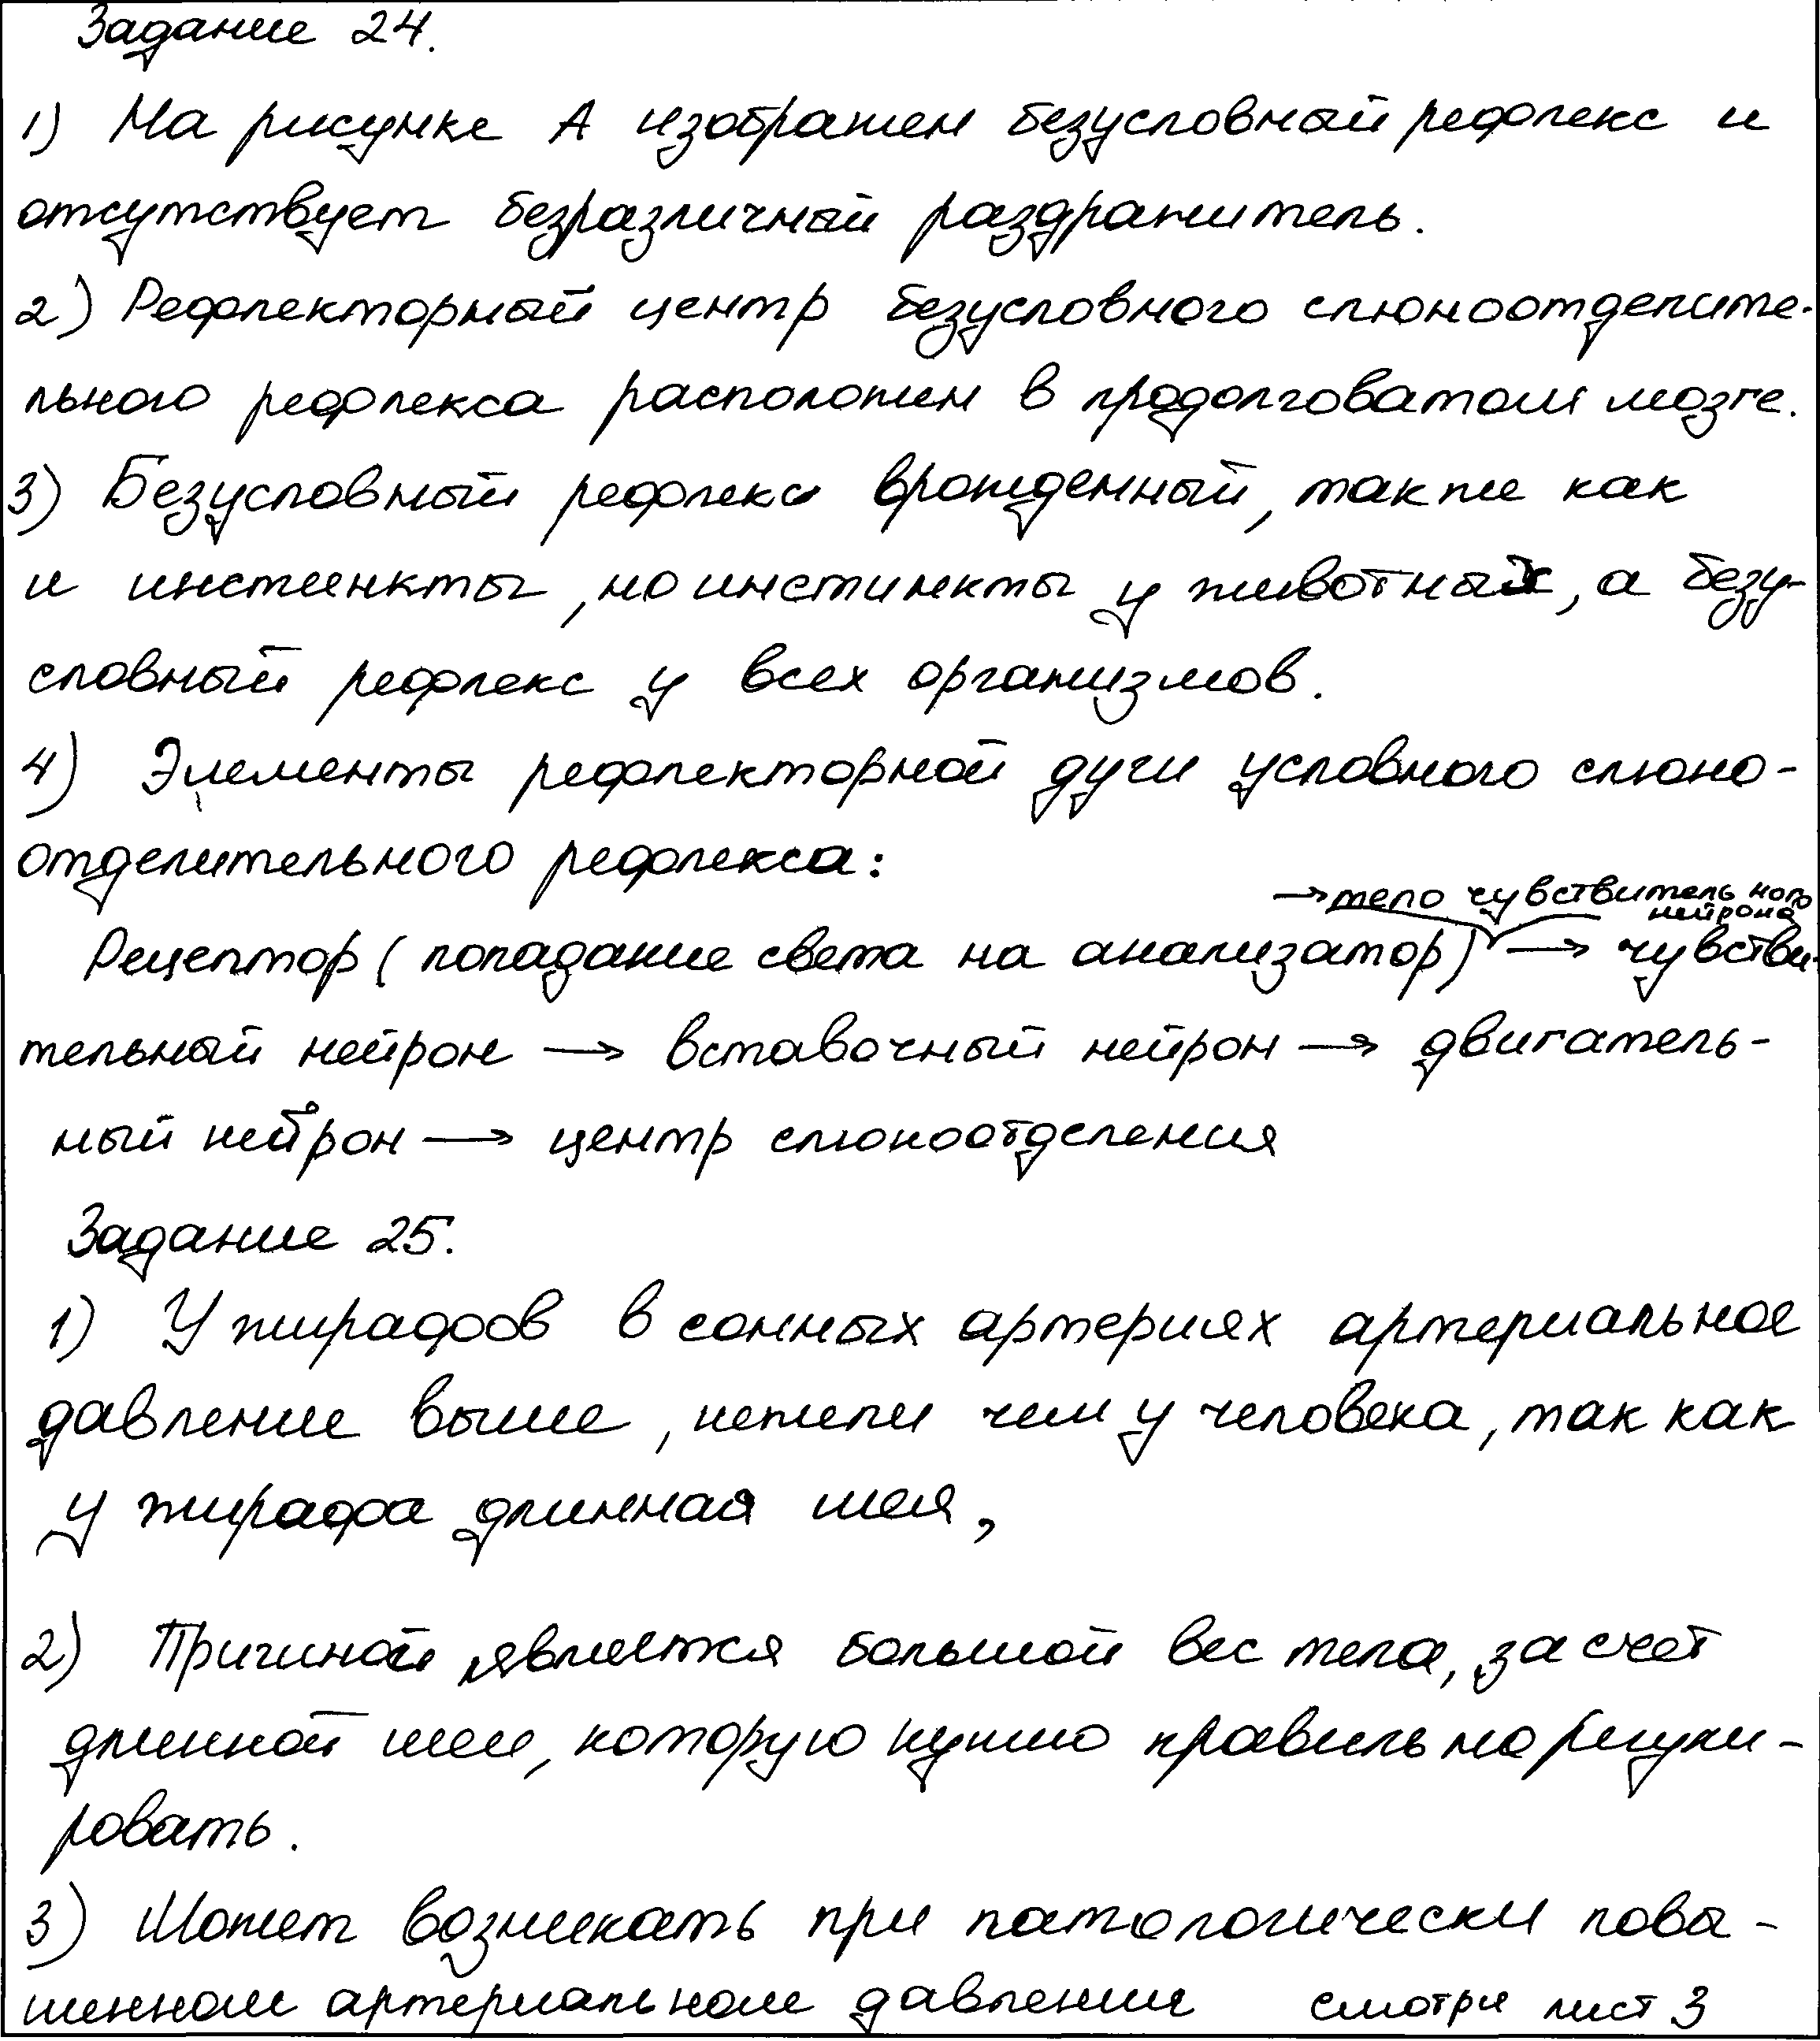 Задание 24.
1) На рисунке А изображен безусловный рефлекс и
отсутствует безразличный раздражитель.
2) Рефлекторный центр безусловного слюноотделите-
льного рефлекса расположен в продолговатом мозге.
3) Безусловный рефлекс врожденный, также как
и инстинкты, но инстинкты у животных, а безу-
словный рефлекс у всех организмов.
4) Элементы рефлекторной дуги условного слюно-
отделительного рефлекса:
→ тело чувствительного
нейрона
Рецептор (попадание света на анализатор) → чувстви-
тельный нейрон → вставочный нейрон → двигатель-
ный нейрон → центр слюноотделения
Задание 25.
1) У жирафов в сонных артериях артериальное
давление выше, нежели чем у человека, так как
у жирафа длинная шея,
2) Причиной является большой вес тела, за счет
длинной шеи, которую нужно правильно регули-
ровать.
3) Может возникать при патологически повы-
шенном артериальном давлении смотри лист 3